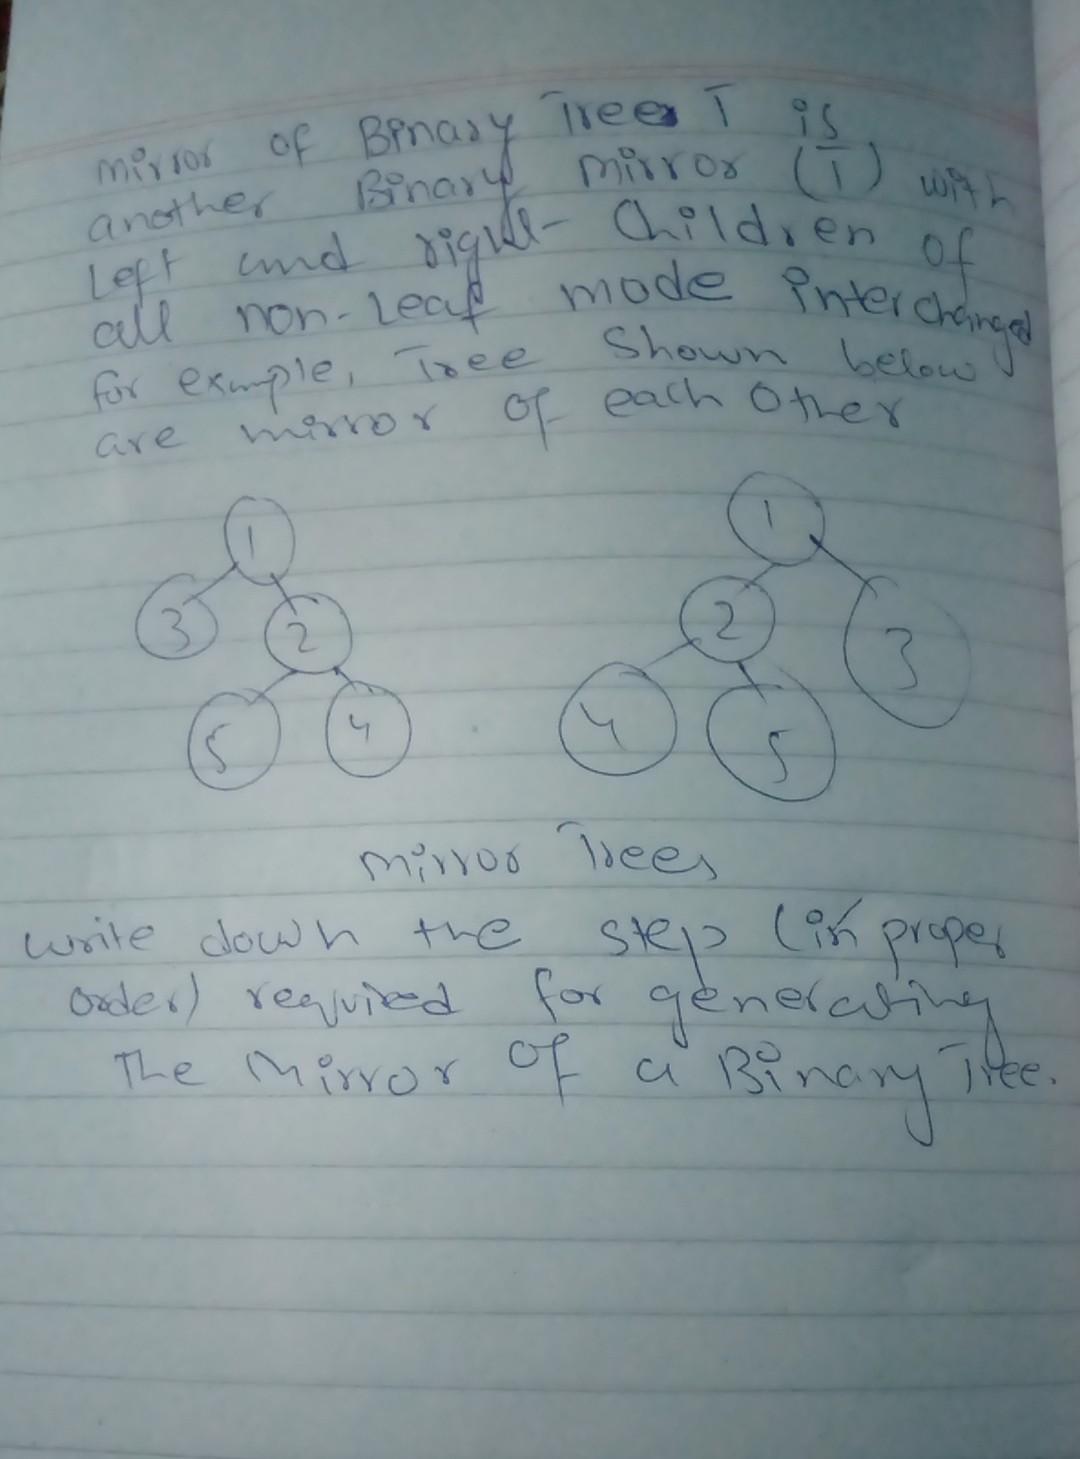 mirror of Binary Tree T is
another Binary mirror (T) with
Left and right Children of
all non-Leaf mode interchanged
for example, Tree Shown below
are mirror of each Other
1 1
3 2 2 3
5 4 4 5
mirror Trees
write down the step (in proper
order) required for generating
The Mirror of a Binary Tree.